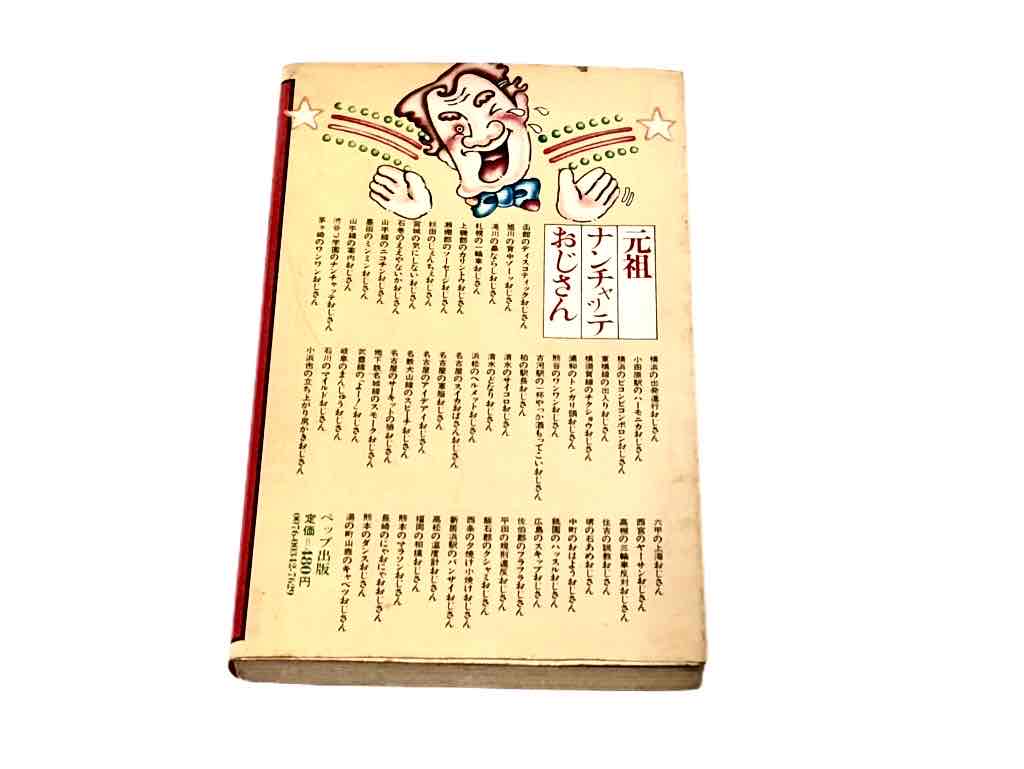 元祖
ナンチャッテ
おじさん
函館のディスコティックおじさん
旭川の背中ゾーッおじさん
滝川の鼻ならしおじさん
札幌の一輪車おじさん
上磯郡のカリントウおじさん
瀬棚郡のソーセージおじさん
秋田のじぇんちぇおじさん
宮城の気にしないおじさん
石巻のええやないかおじさん
山手線のニコチンおじさん
墨田のミンミンおじさん
山手線の案内おじさん
渋谷コ学園のナンチャッテおじさん
茅ヶ崎のワンワンおじさん
横浜の出発進行おじさん
小田原駅のハーモニカおじさん
横浜のピョンピョンポロンおじさん
東横線の出入りおじさん
横須賀線のチクショウおじさん
浦和のトンガリ頭おじさん
熊谷のワンワンおじさん
古河駅の一杯やっか酒もってこいおじさん
柏の駅長おじさん
清水のサイコロおじさん
清水のどなりおじさん
浜松のヘルメットおじさん
名古屋のスイカおばさんおじさん
名古屋の軍服おじさん
名古屋のアイデアイおじさん
名鉄犬山線のスピーチおじさん
名古屋のサーキットの狼おじさん
地下鉄名城線のスモークおじさん
武豊線の「よーノ」おじさん
岐阜のまんじゅうおじさん
石川のマイルドおじさん
小浜市の立ち上がり尻かきおじさん
六甲の上海おじさん
西宮のヤーサンおじさん
高槻の三輪車反対おじさん
住吉の説教おじさん
堺の石あめおじさん
中町のおはようおじさん
鶴園のハッスルおじさん
広島のスキップおじさん
佐伯郡のフラフラおじさん
平田の規則違反おじさん
飯石郡のクシャミおじさん
西条の夕焼け小焼けおじさん
新居浜駅のバンザイおじさん
高松の温度計おじさん
福岡の相撲おじさん
熊本のマラソンおじさん
長崎のにゃおにゃおおじさん
熊本のダンスおじさん
湯の町山鹿のキャベツおじさん
ペップ出版
定価=480円
0076-00342-7629